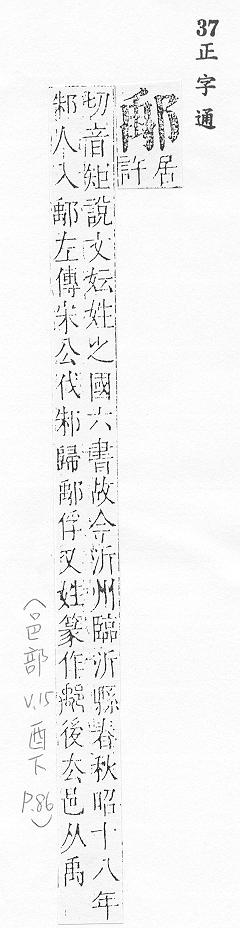 37正字通
鄅居許
切音矩說文妘姓之國六書故今沂州臨沂縣春秋昭十八年
邾人入鄅左傳宋公伐邾歸鄅俘又姓篆作後去邑从禹
(邑部 V.15 酉下 P.86)